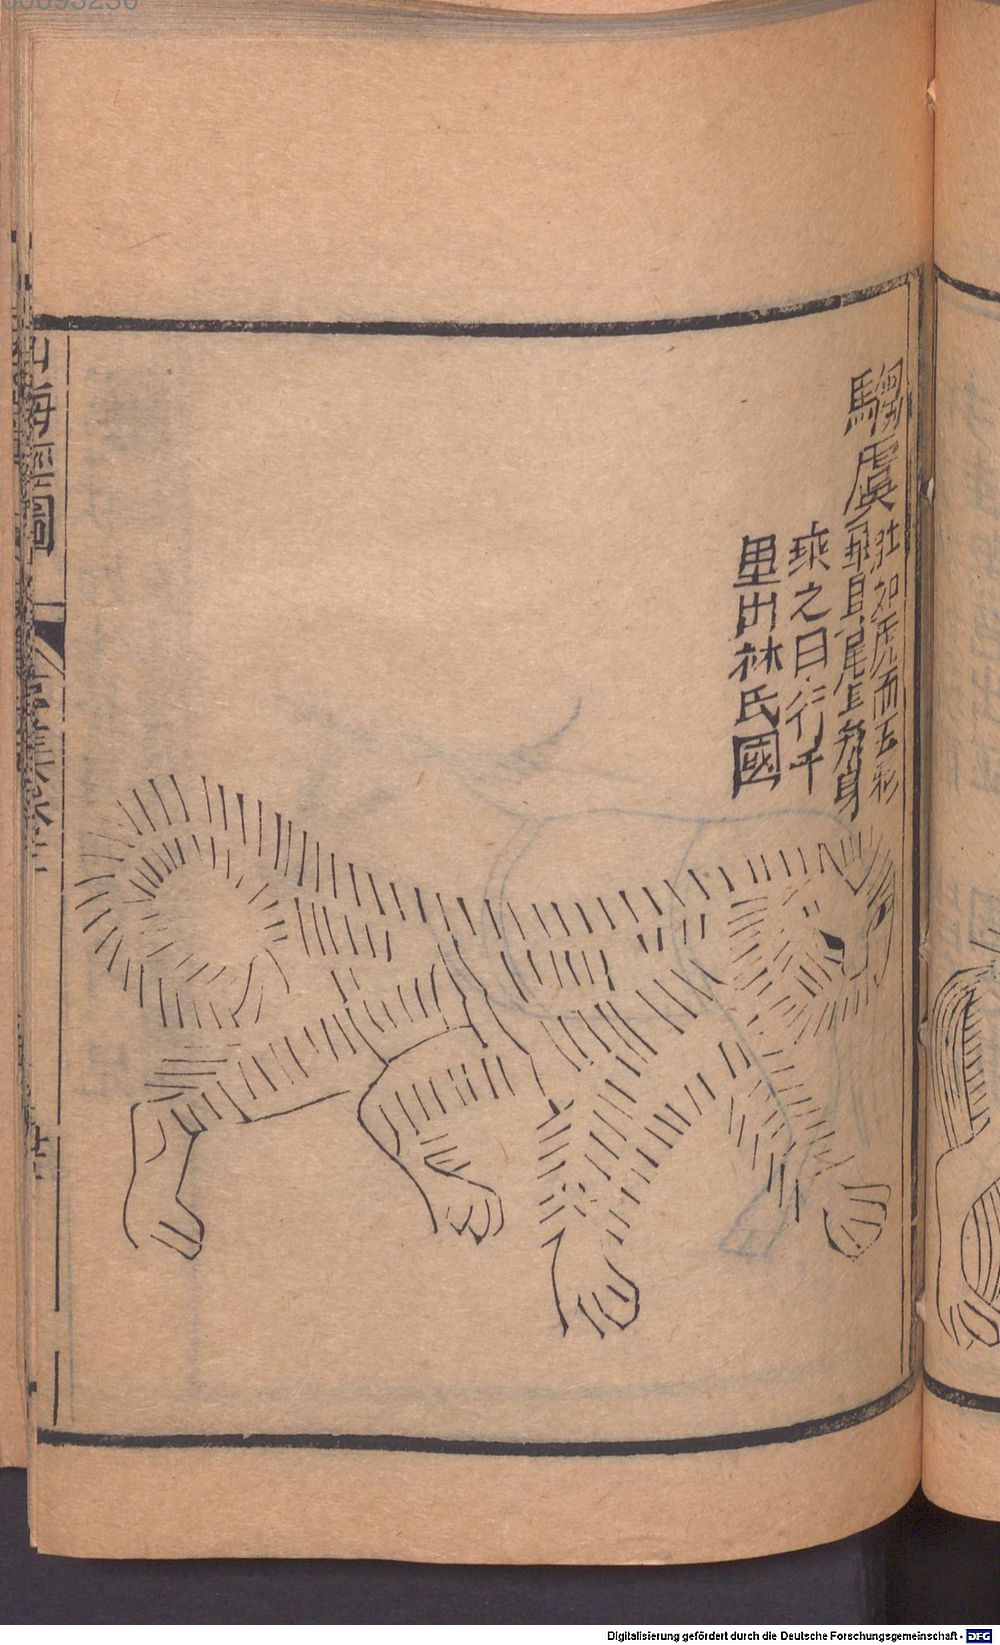 騶虞
壯如虎而五彩
畢具尾長於身
乘之日行千
里出林氏國
山海經圖
00093256
Digitalisierung gefördert durch die Deutsche Forschungsgemeinschaft - DFG